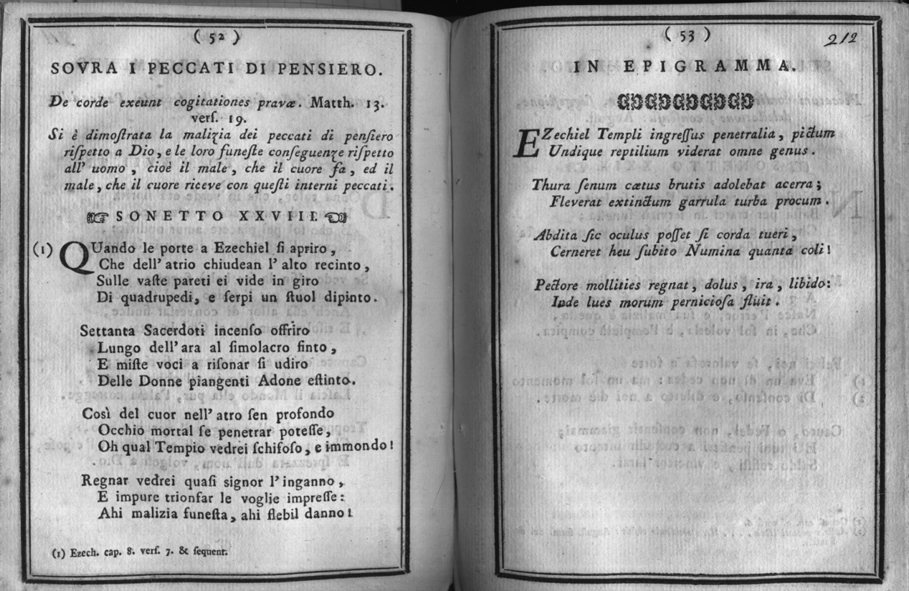 ( 52 )
SOVRA I PECCATI DI PENSIERO.
De corde exeunt cogitationes pravæ. Matth. 13.
verſ. 19.
Si è dimoſtrata la malizia dei peccati di penſiero
riſpetto a Dio, e le loro funeſte conſeguenze riſpetto
all' uomo, cioè il male, che il cuore fa, ed il
male, che il cuore riceve con queſti interni peccati.
SONETTO XXVIII.
(1) QUando le porte a Ezechiel ſi apriro,
Che dell' atrio chiudean l' alto recinto,
Sulle vaſte pareti ei vide in giro
Di quadrupedi, e ſerpi un ſtuol dipinto.
Settanta Sacerdoti incenſo offriro
Lungo dell' ara al ſimolacro finto,
E miſte voci a riſonar ſi udiro
Delle Donne piangenti Adone eſtinto.
Così del cuor nell' atro ſen profondo
Occhio mortal ſe penetrar poteſſe,
Oh qual Tempio vedrei ſchifoſo, e immondo!
Regnar vedrei quaſi signor l' inganno,
E impure trionfar le voglie impreſſe:
Ahi malizia funeſta, ahi flebil danno!
(1) Ezech. cap. 8. verſ. 7. & ſequent.
( 53 )
212
IN EPIGRAMMA.
EZechiel Templi ingreſſus penetralia, pictum
Undique reptilium viderat omne genus.
Thura ſenum cætus brutis adolebat acerra;
Fleverat extinctum garrula turba procum.
Abdita ſic oculus poſſet ſi corda tueri,
Cerneret heu ſubito Numina quanta coli!
Pectore mollities regnat, dolus, ira, libido:
Inde lues morum pernicioſa fluit.